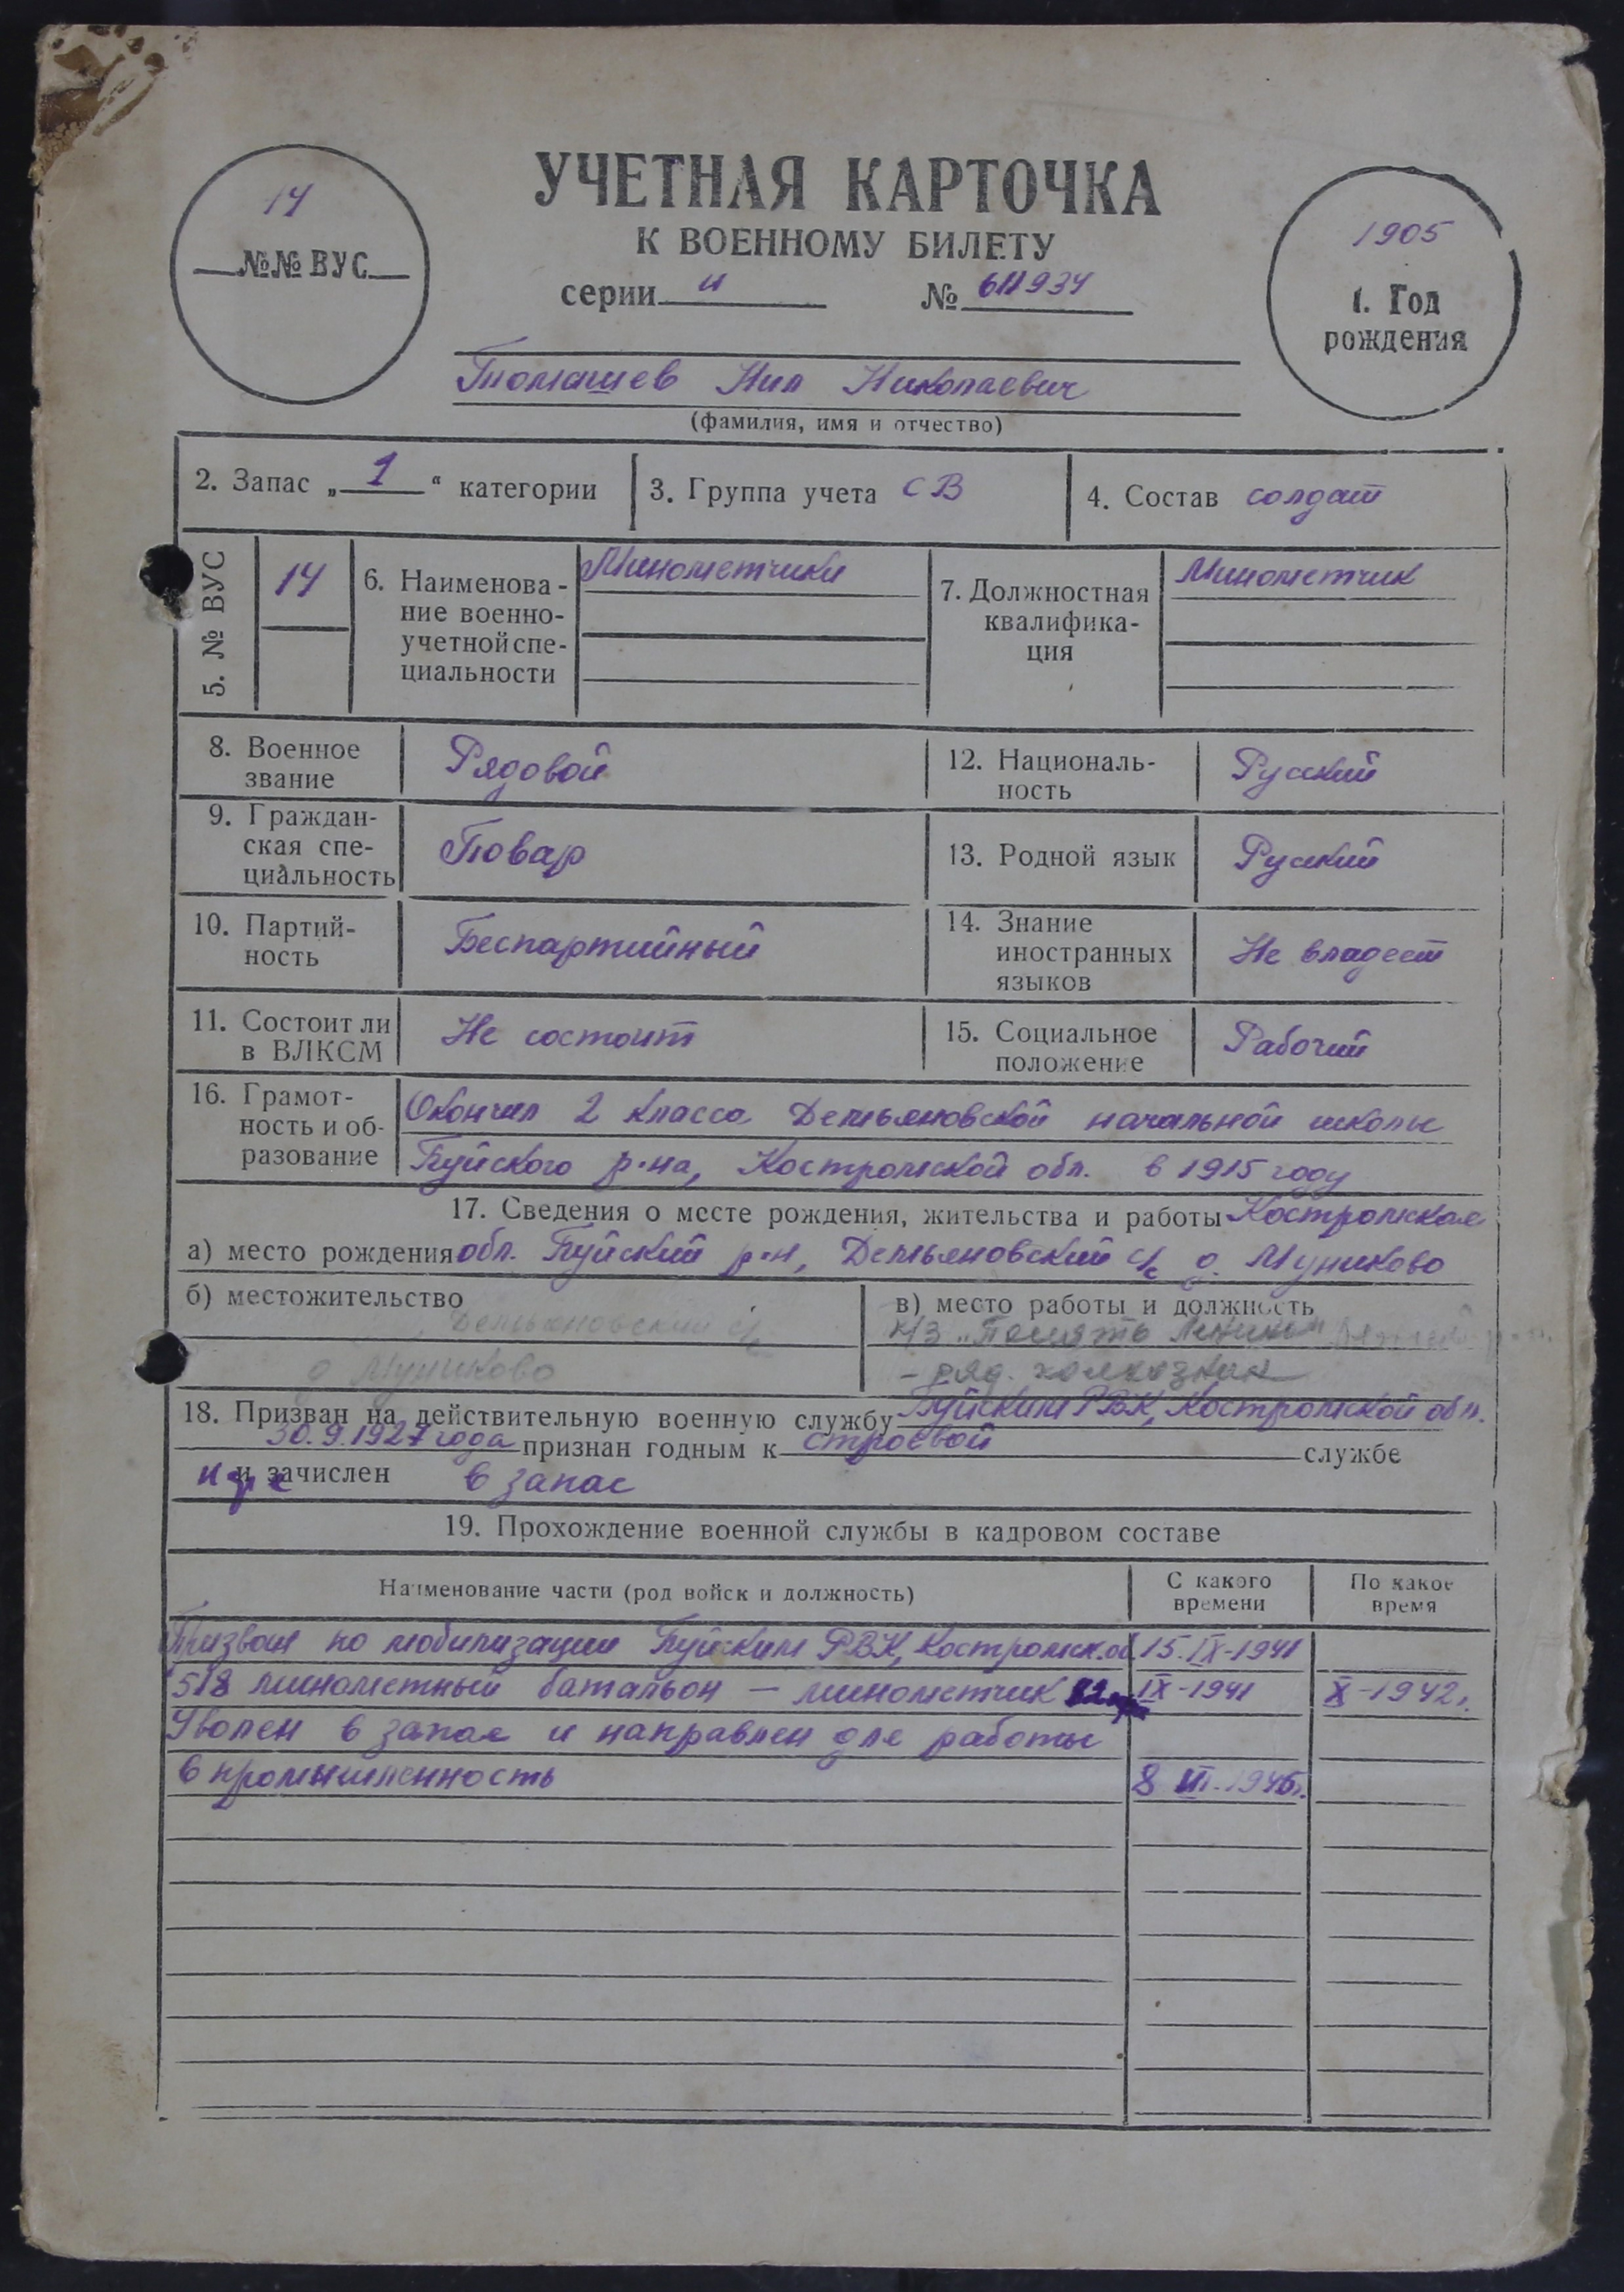 УЧЕТНАЯ КАРТОЧКА
К ВОЕННОМУ БИЛЕТУ
серии И № 611934
14
№№ ВУС
1905
1. Год
рождения
Томашев Нил Николаевич
(фамилия, имя и отчество)
2. Запас „1“ категории
3. Группа учета СВ
4. Состав солдат
5. № ВУС
14
6. Наименова-
ние военно-
учетной спе-
циальности
Минометчики
7. Должностная
квалифика-
ция
Минометчик
8. Военное
звание
Рядовой
12. Националь-
ность
Русский
9. Граждан-
ская спе-
циальность
Повар
13. Родной язык
Русский
10. Партий-
ность
Беспартийный
14. Знание
иностранных
языков
Не владеет
11. Состоит ли
в ВЛКСМ
Не состоит
15. Социальное
положение
Рабочий
16. Грамот-
ность и об-
разование
Окончил 2 класса Демьяновской начальной школы
Буйского р-на, Костромской обл. в 1915 году
17. Сведения о месте рождения, жительства и работы Костромская
а) место рождения обл. Буйский р-н, Демьяновский с/с д. Муниково
б) местожительство
Демьяновский с/с
д. Муниково
в) место работы и должность
к/з „Память Ленина“
– ряд. колхозник
18. Призван на действительную военную службу Буйским РВК, Костромской обл.
30.9.1927 года признан годным к строевой службе
и зачислен в запас
19. Прохождение военной службы в кадровом составе
Наименование части (род войск и должность)
С какого
времени
По какое
время
Призван по мобилизации Буйским РВК, Костромск. об. 15.IX-1941
518 минометный батальон – минометчик 82мм IX-1941 X-1942г.
Уволен в запас и направлен для работы
в промышленность 8 III-1945г.